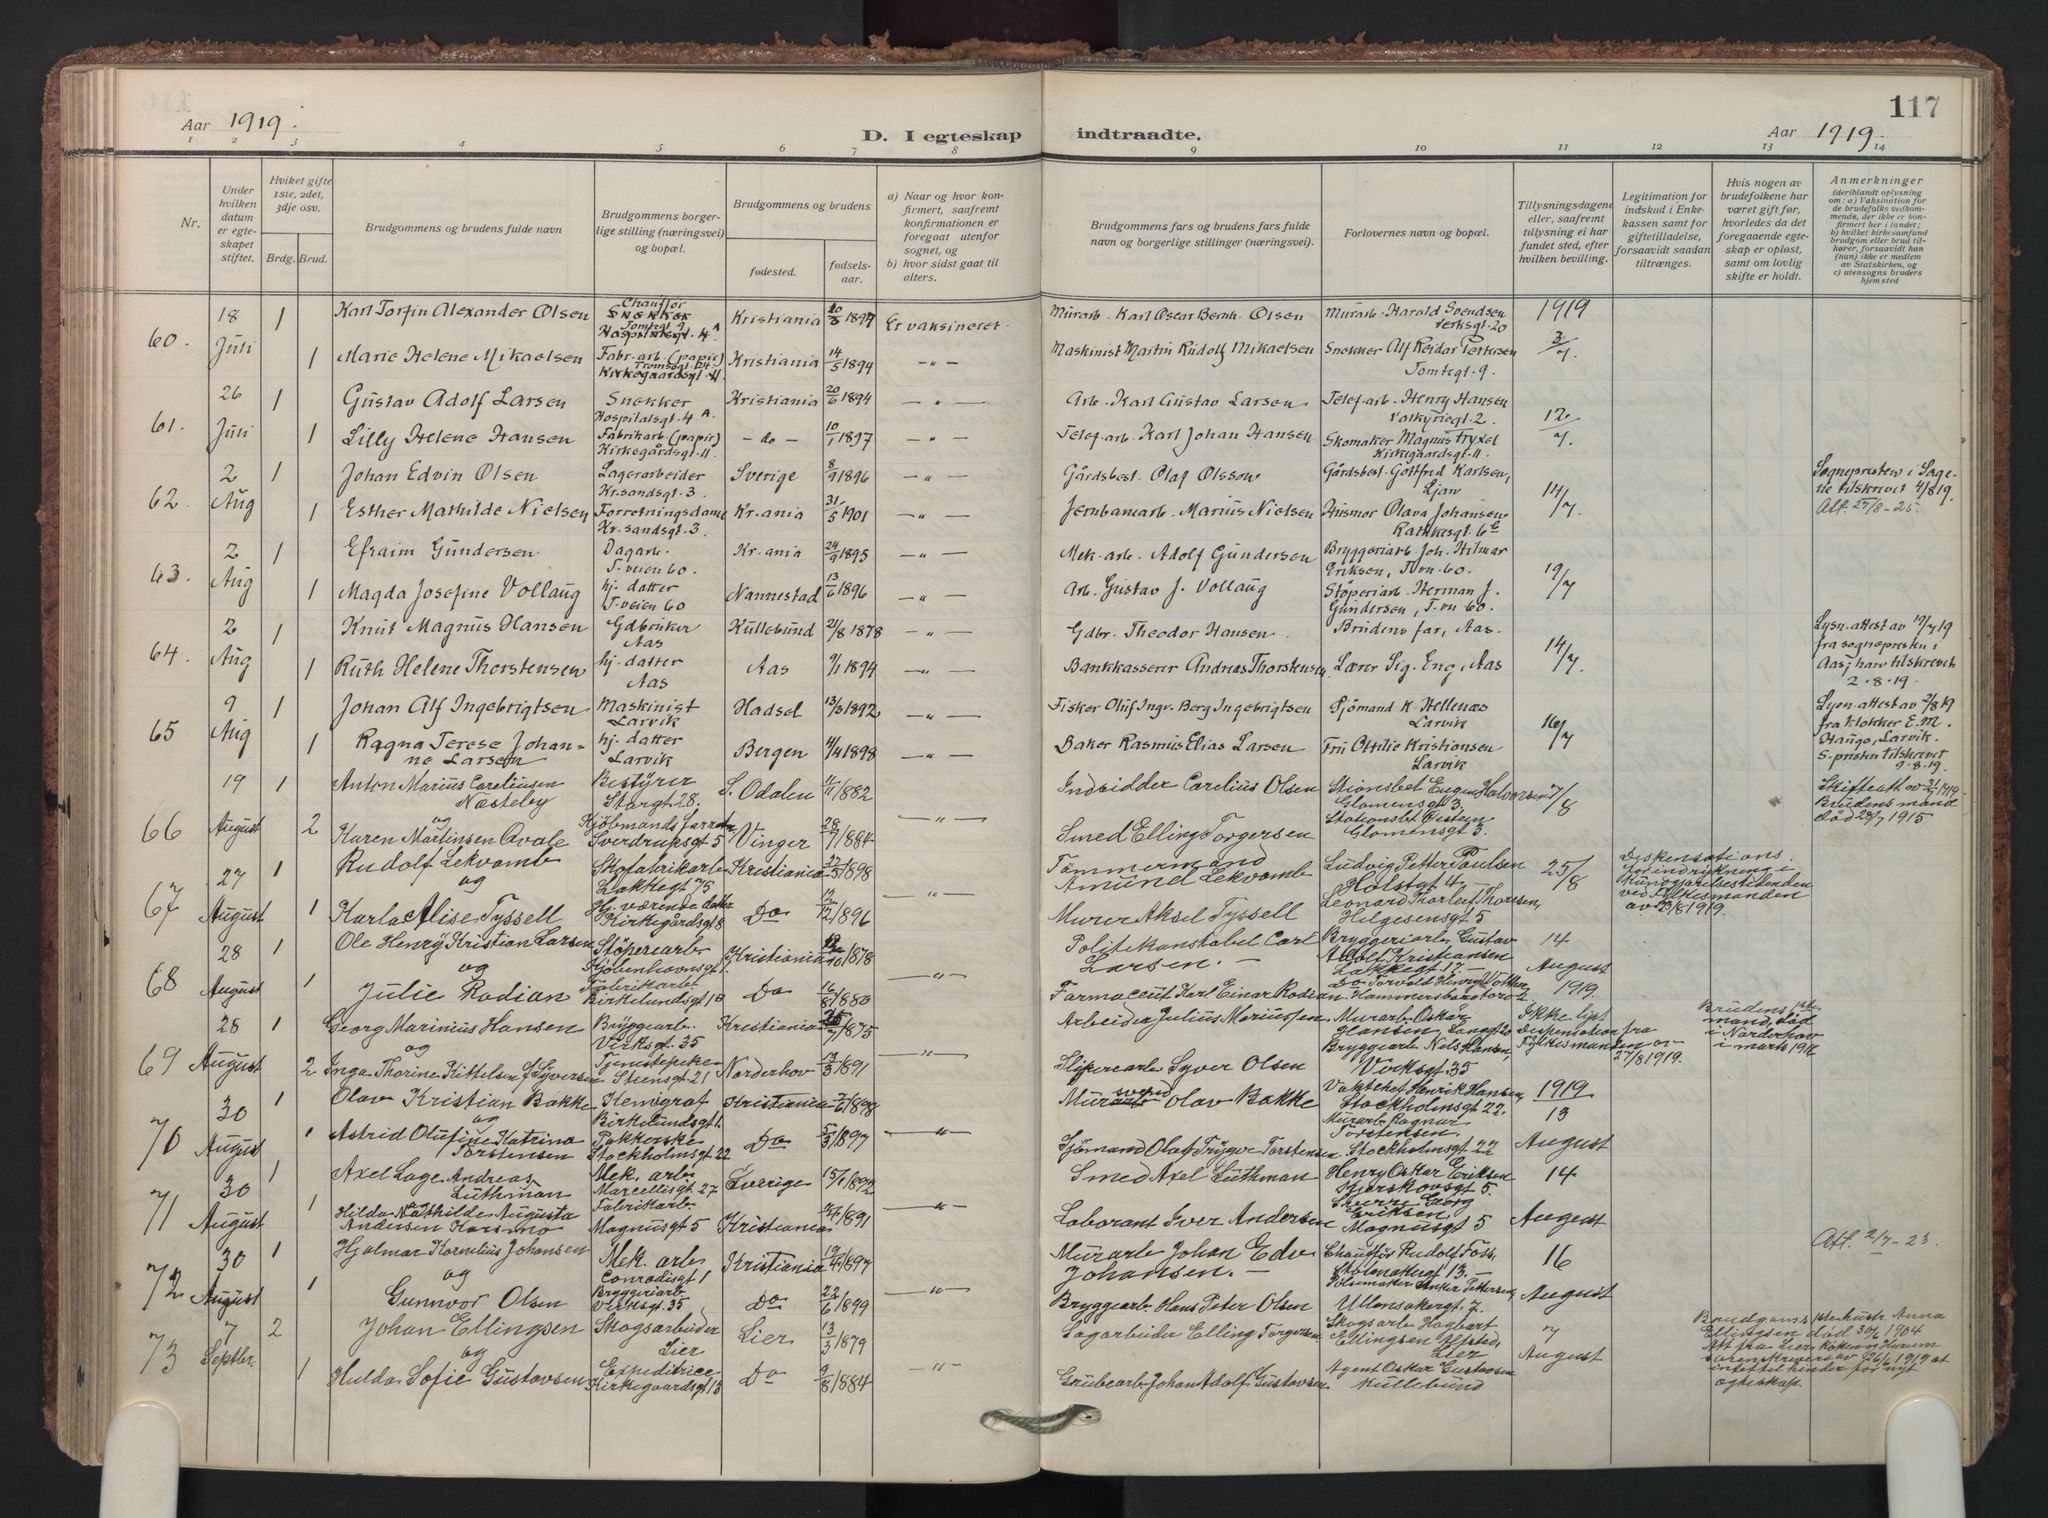 117
Aar 1919.
D. I egteskap indtraadte.
Aar 1919.
1 2 3 4 5 6 7 8 9 10 11 12 13 14
Nr.
Under hvilken datum er egteskapet stiftet.
Hviket gifte 1ste, 2det, 3dje osv.
Brdg. Brud.
Brudgommens og brudens fulde navn
Brudgommens borgerlige stilling (næringsvei) og bopæl.
Brudgommens og brudens
fødested.
fødselsaar.
a) Naar og hvor konfirmert, saafremt konfirmationen er foregaat utenfor sognet, og
b) hvor sidst gaat til alters.
Brudgommens fars og brudens fars fulde navn og borgerlige stillinger (næringsvei).
Forlovernes navn og bopæl.
Tillysningsdagene eller, saafremt tillysning ei har fundet sted, efter hvilken bevilling.
Legitimation for indskud i Enkekassen samt for giftetilladelse, forsaavidt saadan tiltrænges.
Hvis nogen av brudefolkene har været gift før, hvorledes da det foregaaende egteskap er opløst, samt om lovlig skifte er holdt.
Anmerkninger
(deriblandt oplysning om: a) Vaksination for de brudefolks vedkommende, der ikke er konfirmert her i landet; b) hvilket kirkesamfund brudgom eller brud tilhører, forsaavidt han (hun) ikke er medlem av Statskirken, og c) utensogns bruders hjemsted
60. 18 Juli 1 Karl Torfin Alexander Olsen Chauffør Snekker Tomtegt 9 Hospitalsgt. 4 A Kristiania 1897 Er vaksineret. Murarb. Karl Oscar Bernh. Olsen Murarb. Harald Svendsen Verksgt. 20 1919 3/7.
1 Marie Helene Mikaelsen Fabr. arb. (papir) Kirkegaardsgt. 11 Kristiania 14/5 1894 — " — Maskinist Martin Rudolf Mikaelsen Snekker Alf Reidar Pettersen Tomtegt. 9.
61. 26 Juli 1 Gustav Adolf Larsen Snekker Hospitalsgt. 4 A Kristiania 20/6 1894 — " — Arb. Karl Gustav Larsen Telef. arb. Henry Hansen Valkyriegt. 2. 12/7.
1 Lilly Helene Hansen Fabrikarb. (papir) Kirkegårdsgt. 11 — do — 10/1 1897 — " — Telef. arb. Karl Johan Hansen Skomaker Magnus Fryxel Kirkegaardsgt. 11.
62. 2 Aug 1 Johan Edvin Olsen Lagerarbeider Kr.sandsgt. 3. Sverige 8/9 1896 — " — Gårdsbest. Olaf Olsson Gårdsbest. Gottfred Karlsen, Ljan 14/7. Sognepresten i Sagene tilskrevet 4/8 19. Att. 25/8 - 25.
1 Esther Mathilde Nielsen Forretningsdame Kr.sandsgt. 3. Kr.ania 31/5 1901 — " — Jernbanearb. Marius Nielsen Olava Johansen Rathkesgt. 6
63. 2 Aug 1 Efraim Gundersen Dagarb. T. veien 60. Kr.ania 24/9 1895 — " — Mek. arb. Adolf Gundersen Bryggeriarb. Joh. Hilmar Eriksen, T.vn. 60. 19/7
1 Magda Josefine Vollaug hj. datter T. veien 60 Nannestad 13/6 1896 — " — Arb. Gustav J. Vollaug Støperiarb. Herman J. Gundersen, T.vn 60.
64. 2 Aug 1 Knut Magnus Hansen Gdbruker Aas Kullebund 21/8 1878 — " — Gdbr. Theodor Hansen Brudens far, Aas. 14/7. Lysn.attest av 19/7 19 fra sognepresten i Aas, harv tilskrevet 2.8.19.
1 Ruth Helene Thorstensen hj. datter Aas Aas 9/1 1894 — " — Bankkasserer Andreas Thorstensen Lærer Sig. Eng, Aas
65 9 Aug 1 Johan Alf Ingebrigtsen Maskinist Larvik Hadsel 13/3 1892 — " — Fisker Oluf Ingv. Berg Ingebrigtsen Sjömand K. Hellenæs Larvik 16/7 Lysn. attest av 2/8 19 fra klokker E. M. Hauge, Larvik. S.presten tilskrevet 9.8.19.
1 Ragna Terese Johanne Larsen hj. datter Larvik Bergen 4/4 1898 — " — Baker Rasmus Elias Larsen Fru Ottilie Kristiansen Larvik
66 19 August 1 Anton Marius Careliusen Næsteby Bestyrer Storgt. 28. S. Odalen 11/11 1882 — " — Indridder Carelius Olsen Stionsbet Eugen Halvorsen Glomensgt 3. 7/8 Skifteatt av 31/7 1919 Brudens mand død 28/7 1915
og
2 Karen Martinsen Ovale Kjøbmandsforretn Sverdrupsgt 5 Vinger 28/7 1884 Smed Elling Torgersen Stationsbt Øistein Glomensgt 3.
67 27 August Rudolf Lekvamb Skofabrikarb Lakkegt 75 Kristiania 27/5 1898 — " — Tömmermand Amund Lekvamb Ludvig Petter Paulsen Holstgt 4. 25/8 Dispensations for indrykning i Kundgjørelsestidenden ved Fylkesmanden av 1919.
og
1 Karla Alise Tyssell Hj. værende datter Kirkegårdsgt 8 Do 12/12 1896 Murer Aksel Tyssell Leonard Thorleif Thoresen, Helgesensgt 5
68 28 August 1 Ole Henry Kristian Larsen Støperiarb Kjøbenhavnsgt 1. Kristiania 12/10 1878 — " — Politikonstabel Carl Larsen. — Bryggeriarb Gustav Adolf Kristiansen Lakkegt 17. — 14 August 1919.
og
1 Julie Rodian Fabrikarbet Birkelundsgt 10 Do 16/8 1880 Farmaceut Karl Einar Rodian Do Torvald Henry Hammersborgtorv 2.
69 28 August 1 Georg Marinius Hansen Bryggearb. Virksgt. 35 Kristiania 25/7 1875 — " — Arbeider Julius Mariussen Murarb. Oskar Hansen, Langgt 20 Ikke lyst Dispensation fra Fylkesmanden av 27/8 1919. Brudens 1ste mand, död i Norderhov i marts 1916
og
2 Inga Thorine Kittelsen f. Syversen Tjenestepike Steensgt. 21 Norderhov 13/3 1891 Hjperearb Syver Olsen Bryggearb Nels Hansen, Virksgt. 35
70 30 August 1 Olav Kristian Bakke Hemgraf Birkelundsgt 1. Kristiania 1898 — " — Mursvend Olav Bakke Vaktchef Henrik Hansen, Stockholmsgt 22. 1919 13 August
og
1 Astrid Olufine Katrina Torstensen Pakkerske Stockholmsgt 22 Do 5/3 1897 Sjömand Olaf Trygve Torstensen Murarb. Ragnar Torstensen. Stockholmsgt 22
71 30 August 1 Axel Lage Andreas Luthman Mek. arb. Marcellisgt 27 Sverige 15/1 1892 — " — Smed Axel Luthman Henry Oskar Eriksen Hjerskovsgt 5. 14 August
1 Hilda Mathilde Augusta Andersen Karsmo Fabrikarb. Magnusgt 5 Kristiania 1891 Laborant Iver Andersen Sverre Georg Eriksen, Magnusgt 5
72 30 August 1 Hjalmar Kornelius Johansen Mek. arb Conradisgt 1 Kristiania 19/4 1897 — " — Murarb Johan Edv Johansen. — Chauffør Rudolf Foss Skolmakergt 13. — 16 August Att. 2/7 - 23.
og
1 Gunnvor Olsen Bryggeriarb Virksgt. 35 Do 22/6 1899 Bryggearb Hans Peter Olsen Pölsemaker Anker Pettersen, Ullensakergt. 7.
73 7 Septbr. 2 Johan Ellingsen Skogsarbeider Lier Lier 13/3 1879 — " — Sagarbeider Elling Torgersen Skogsarb Hagbart Ellingsen Lier 7 August Brudgoms 1ste hustr. Anna Ellingsen död 30/6 1904 Att fra Lier, Röken og Hurum sorenskriveri av 26/6 1919 at intet til hinder for nyt egteskap.
og
1 Hulda Sofie Gustavsen Expeditrice Kirkegaardsgt 13 Do 9/8 1884 Grubearb Johan Adolf Gustavsen Agent Oskar Gustavsen Kullebund